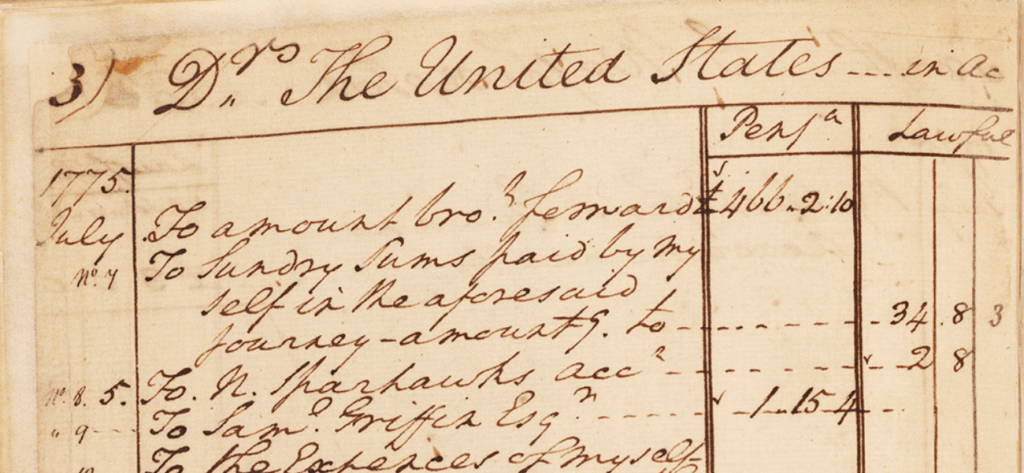 3) Drs,, The United States --- in ac
Pensa Lawful
1775.
July To amount bro.t forward £466.2:10
No. 7 To Sundry Sums paid by my
self in the aforesaid
Journey - amountg. to - 34.8 3
No. 8. 5. To N. Sparhawks acct - 2 8
" 9 To Sam.l Griffin Esqr - 1.15.4
To the Expences of myself